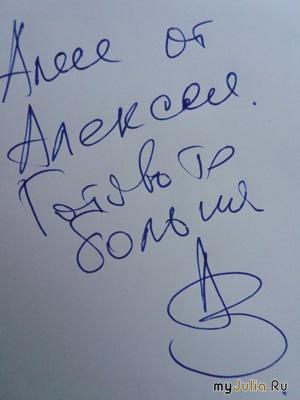 Алле от
Алексея.
Готовьте
больше
myJulia.Ru